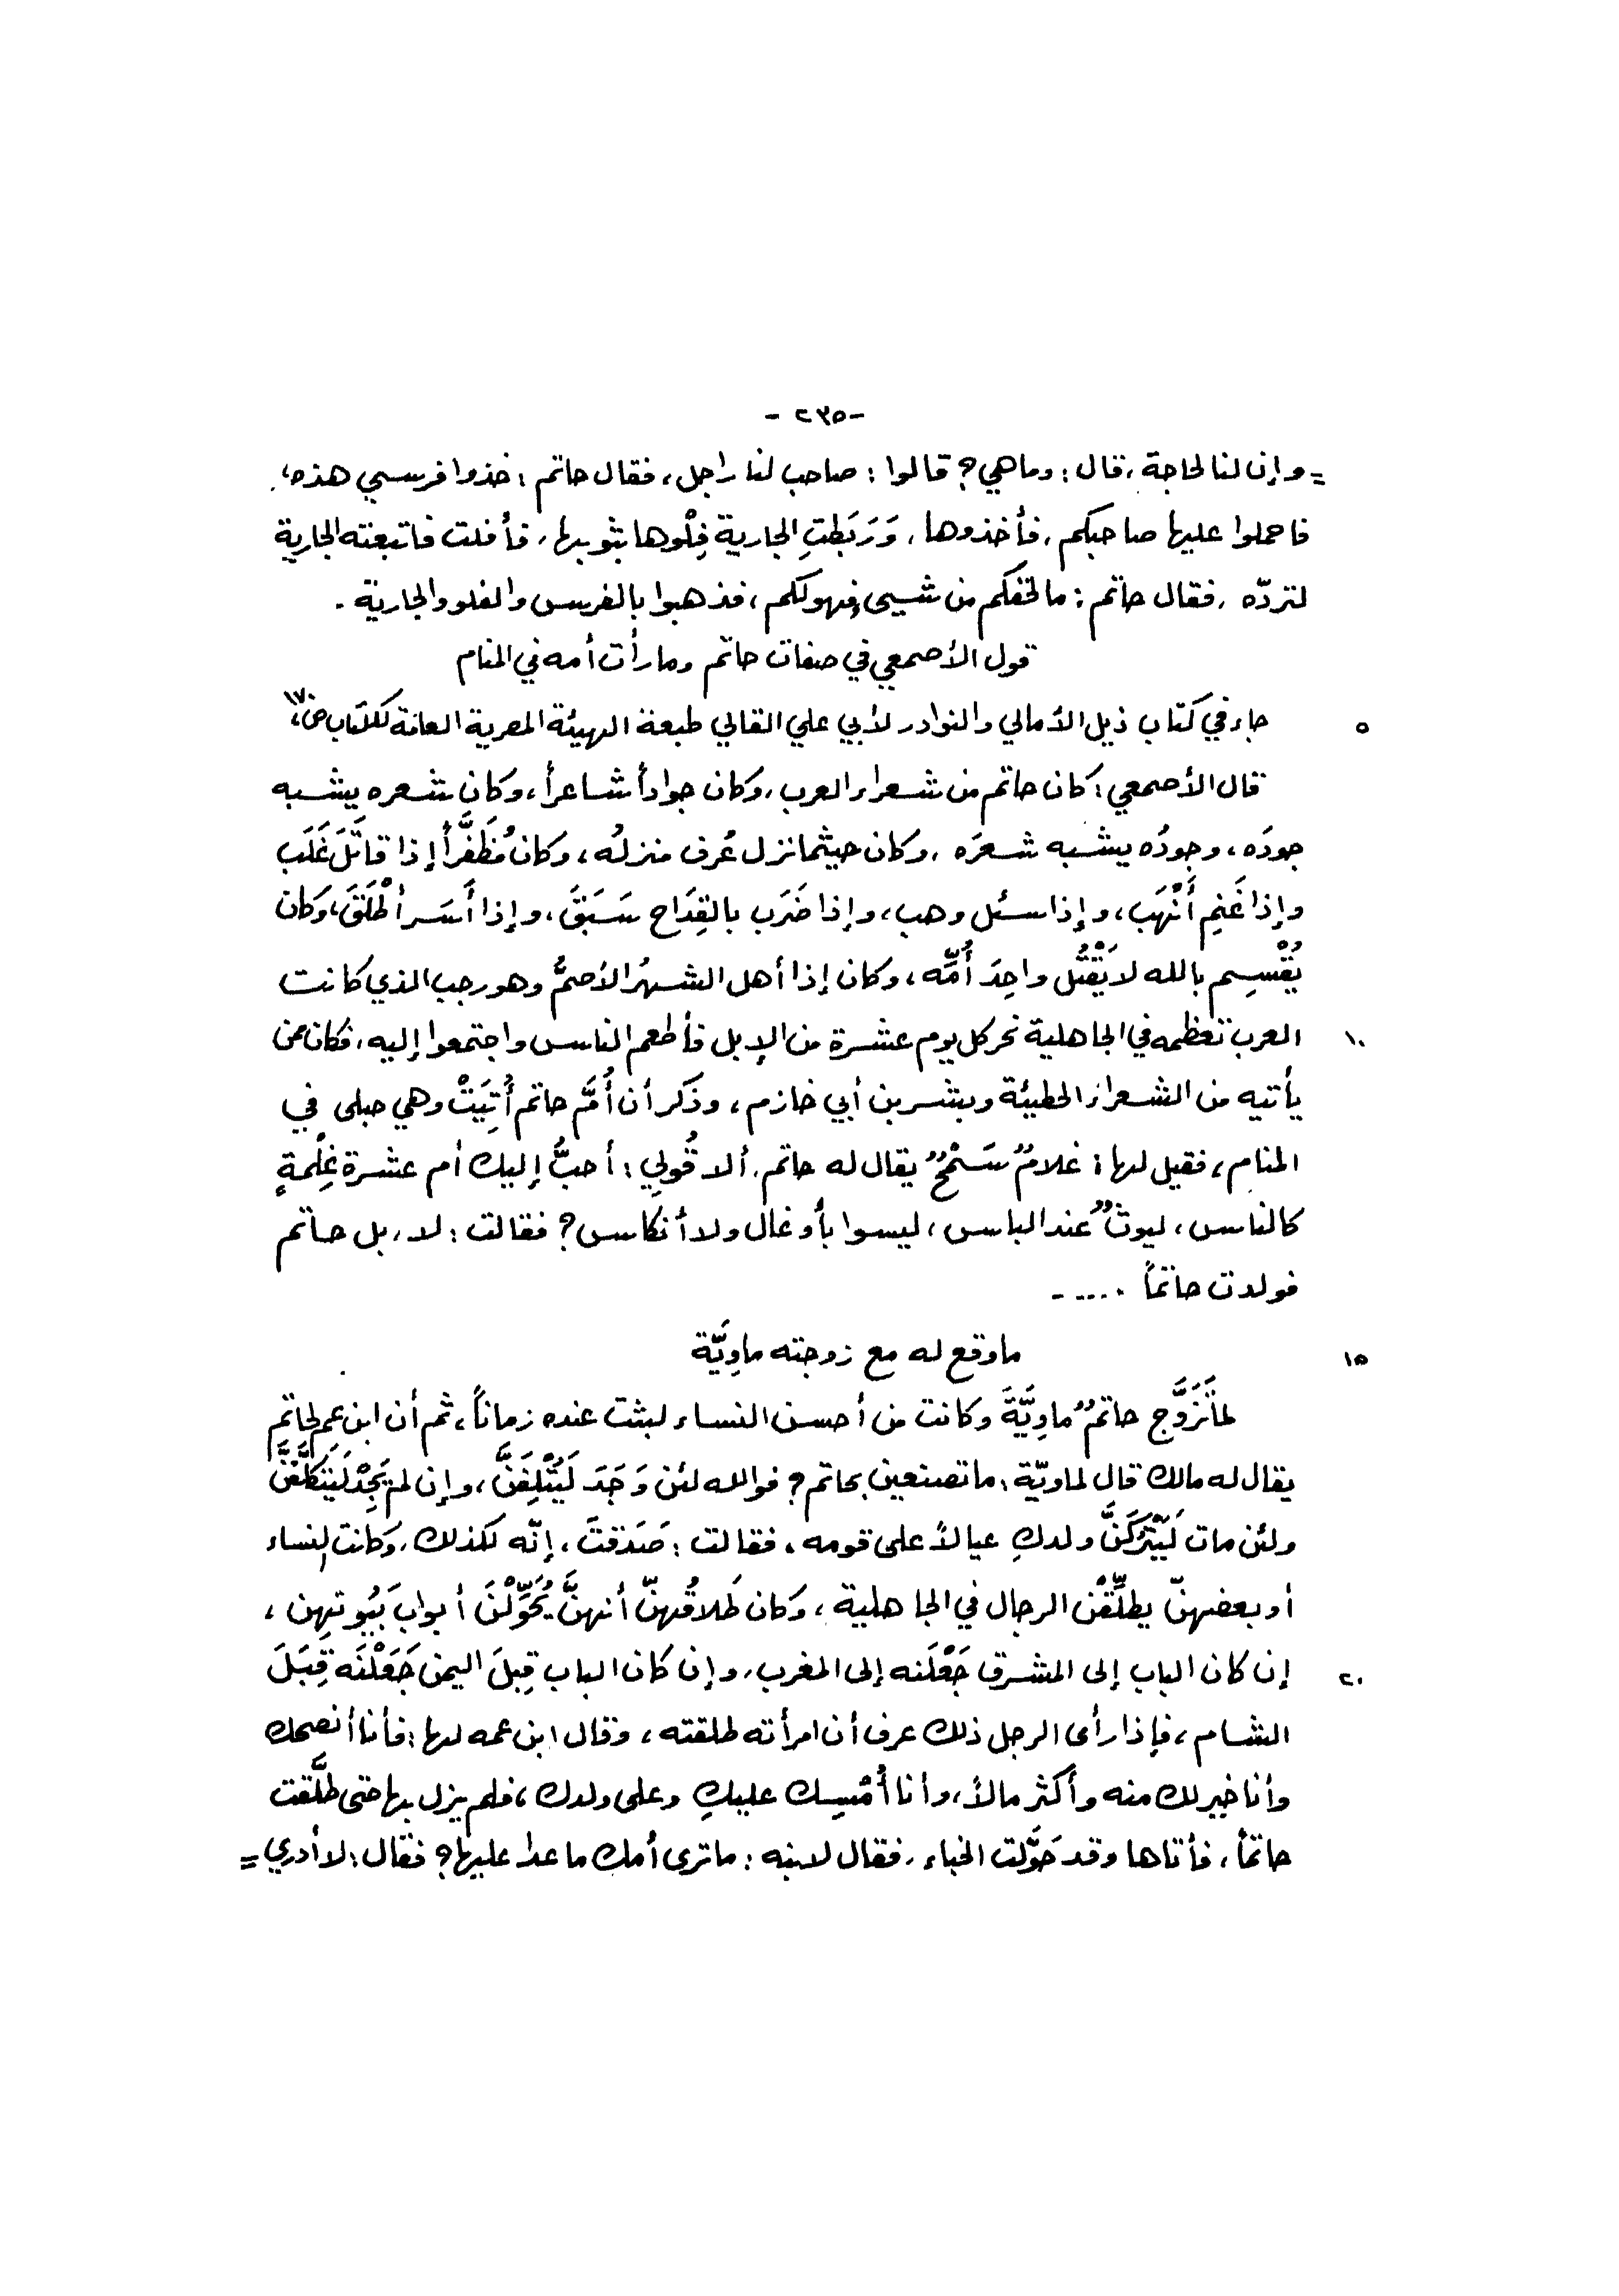 - ٢٣٥ -
= وإن لنا لحاجة ، قال : وما هي ؟ قالوا : صاحب لنا راجل ، فقال حاتم : خذوا فرسي هذه ،
فاحملوا عليها صاحبكم ، فأخذوها ، وَرَبَطتِ الجارية فِلْوها بثوبها ، فأفلت فاتبعته الجارية
لتردّه ، فقال حاتم : ما لحقكم من شيىء فهو لكم ، فذهبوا بالفرس والفلو والجارية .
قول الأصمعي في صفات حاتم وما رأت أمه في المنام
٥ جاء في كتاب ذيل الأمالي والنوادر لأبي علي القالي طبعة الهيئة المصرية العامة للكتاب ص ،١٧
قال الأصمعي : كان حاتم من شعراء العرب ، وكان جواداً شاعراً ، وكان شعره يشبه
جودَه ، وجودُه يشبه شعرَه ، وكان حيثما نزل عُرف منزلُه ، وكان مُظَفَّراً إذا قاتَلَ غَلَب
وإذا غَنِم أَنْهَب ، وإذا سئل وهب ، وإذا ضَرَب بالقِدَاح سَبَقَ ، وإذا أَسَر أطْلَقَ ، وكان
يُقْسِم بالله لا يَقْتُل واحِدَ أُمِّه ، وكان إذا أهل الشهرُ الأصمُّ وهو رجب الذي كانت
١٠ العرب تعظمه في الجاهلية نحر كل يوم عشرة من الإبل فأطعم الناس واجتمعوا إليه ، فكان ممن
يأتيه من الشعراء الحطيئة وبشر بن أبي خازم ، وذكر أن أُمَّ حاتم أُتِيَتْ وهي حبلى في
المنام ، فقيل لها : غلامٌ سَمْحٌ يقال له حاتم . ألا قُولي : أحبُّ إليك أم عشرة غِلْمةٍ
كالناس ، ليوثٌ عند الباس ، ليسوا بأوغال ولا أنكاس ؟ فقالت : لا ، بل حاتم
فولدت حاتماً .....
١٥ ما وقع له مع زوجته ماوِيَّة
لما تَزَوَّج حاتمٌ ماوِيَّةَ وكانت من أحسن النساء لبثت عنده زماناً ، ثم أن ابن عم لحاتم
يقال له مالك قال لماويّة : ما تصنعين بحاتم ؟ فوالله لئن وَجَدَ لَيُتْلِفَنَّ ، وإن لم يَجِدْ لَيَتَكَلَّفَنَّ
ولئن مات لَيَتْرُكَنَّ ولدكِ عيالاً على قومه ، فقالت : صَدَقتَ ، إنّه لكذلك . وكانت النساء
أو بعضهنّ يطلِّقْن الرجال في الجاهلية ، وكان طَلاقُهنّ أنهنَّ يُحَوِّلْنَ أبوابَ بَيُوتهن ،
٢٠ إن كان الباب إلى المشرق جَعْلَنه إلى المغرب ، وإن كان الباب قِبلَ اليمن جَعَلْنَه قِبَلَ
الشام ، فإذا رأى الرجل ذلك عرف أن امرأته طلقته ، وقال ابن عمه لها : فأنا أنصحك
وأنا خير لك منه وأكثر مالاً ، وأنا أُمْسِك عليكِ وعلى ولدك ، فلم يزل بها حتى طلَّقت
حاتماً ، فأتاها وقد حَوَّلت الخباء ، فقال لابنه : ما ترى أمك ما عدا عليها ؟ فقال : لا أدري =